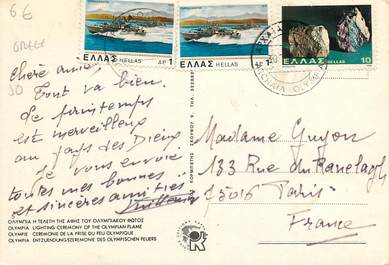 6€
GRECE
30
Chère amie
Tout va bien.
Le printemps
est merveilleux
au pays des Dieux
Je vous envoie
toutes mes bonnes
et sincères amitiés
ΕΛΛΑΣ ΔΡ 1
HELLAS
ΕΛΛΑΣ ΔΡ 1
HELLAS
ΕΛΛΑΣ
HELLAS 10
ARCHAIA OLYMPIA
Madame Guyon
133 Rue du Ranelagh
75016 Paris
France
ΟΛΥΜΠΙΑ Η ΤΕΛΕΤΗ ΤΗΣ ΑΦΗΣ ΤΟΥ ΟΛΥΜΠΙΑΚΟΥ ΦΩΤΟΣ
OLYMPIA LIGHTING CEREMONY OF THE OLYMPIAN FLAME
OLYMPIE CEREMONIE DE LA PRISE DU FEU OLYMPIQUE
OLYMPIA ENTZUENDUNGSZEREMONIE DES OLYMPISCHEN FEUERS